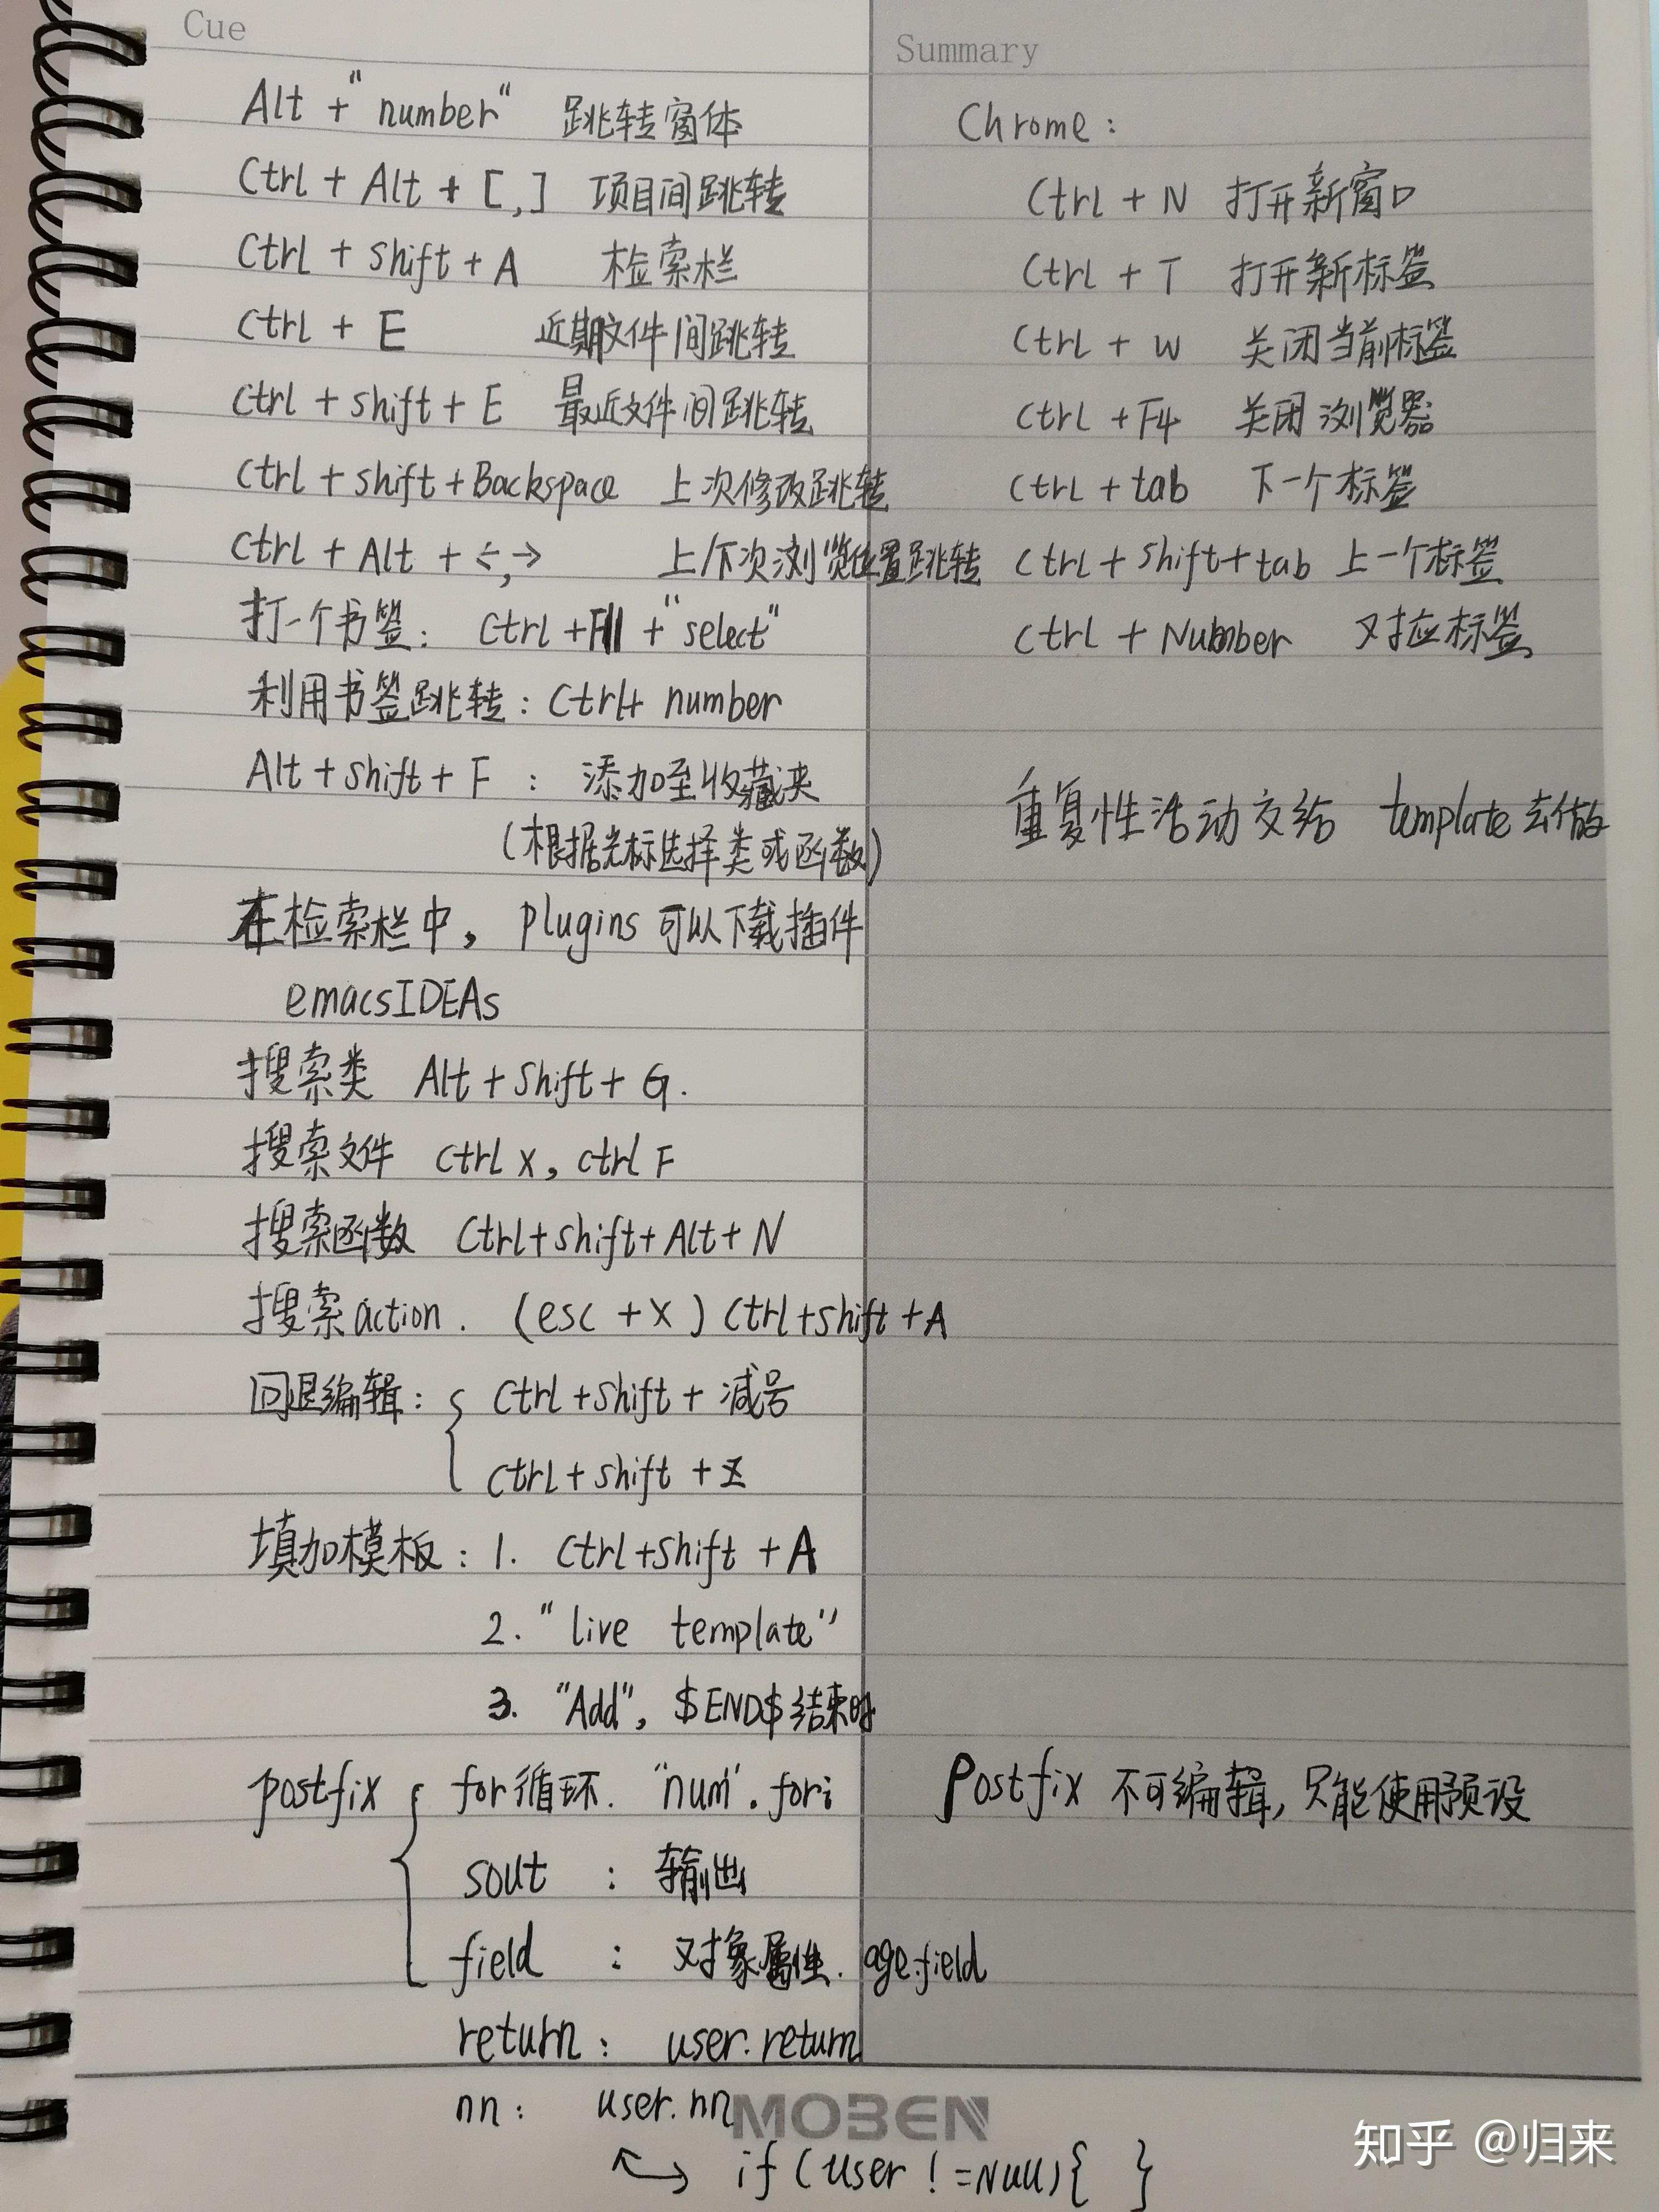 Cue
Alt + "number" 跳转窗体
Ctrl + Alt + [,] 项目间跳转
Ctrl + shift + A 检索栏
Ctrl + E 近期文件间跳转
Ctrl + shift + E 最近文件间跳转
Ctrl + shift + Backspace 上次修改跳转
Ctrl + Alt + ←,→ 上/下次浏览位置跳转
打一个书签: Ctrl + F11 + "select"
利用书签跳转: Ctrl+ number
Alt + shift + F : 添加至收藏夹
(根据光标选择类或函数)
在检索栏中, plugins 可以下载插件
emacsIDEAs
搜索类 Alt + Shift + G.
搜索文件 ctrl x, ctrl F
搜索函数 Ctrl+shift+Alt+N
搜索action. (esc + X) Ctrl+shift+A
回退编辑: { Ctrl+Shift + 减号
Ctrl+shift + Z
填加模板: 1. Ctrl+Shift + A
2. "live template"
3. "Add", $END$ 结束时
postfix { for循环. "num". fori
sout : 输出
field : 对象属性. age.field
return : user.return
nn : user.nn
↔ if (user != Null) { }
Summary
Chrome:
Ctrl + N 打开新窗口
Ctrl + T 打开新标签
Ctrl + W 关闭当前标签
Ctrl + F4 关闭浏览器
Ctrl + tab 下一个标签
Ctrl + shift + tab 上一个标签
Ctrl + Number 对应标签
重复性活动交给 template 去做
Postfix 不可编辑, 只能使用预设
MOBEN
知乎 @归来